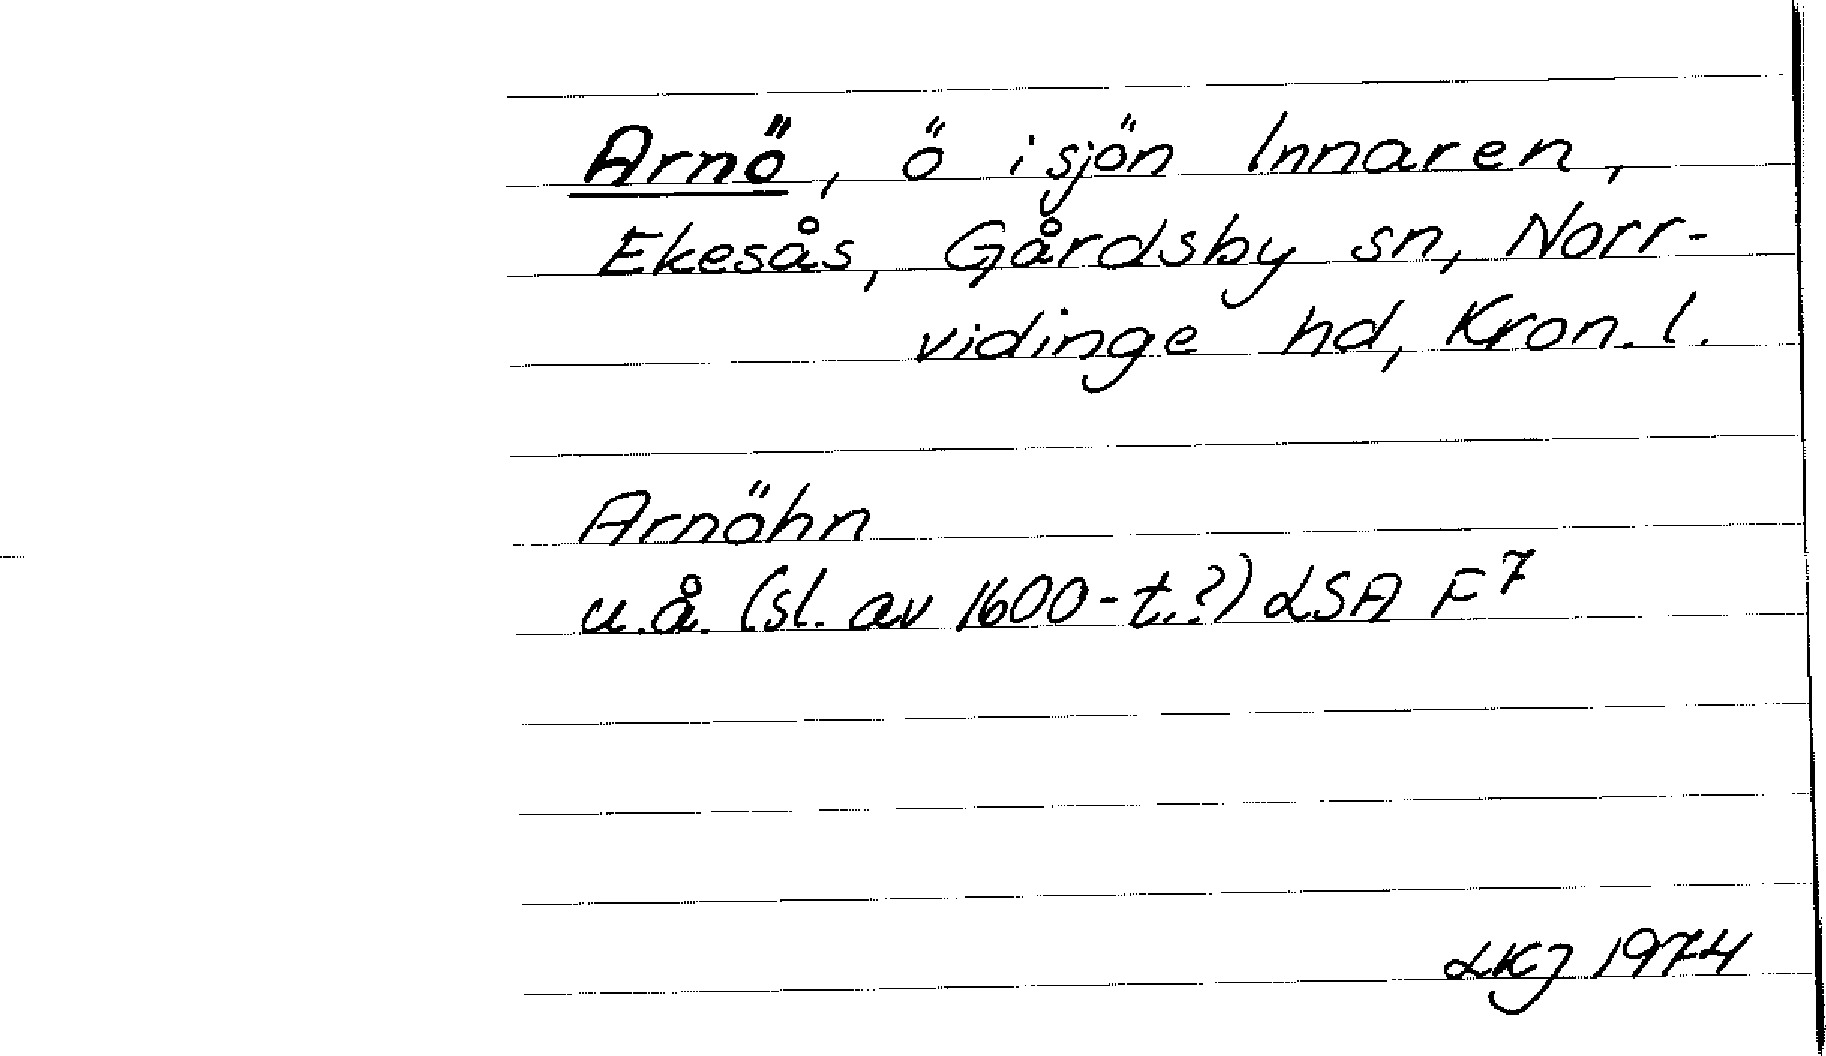 Arnö, ö i sjön Innaren,
Ekesås, Gårdsby sn, Norr-
vidinge hd, Kron. l.
Arnöhn
u.å. (sl. av 1600-t.?) LSA F7
LKJ 1974